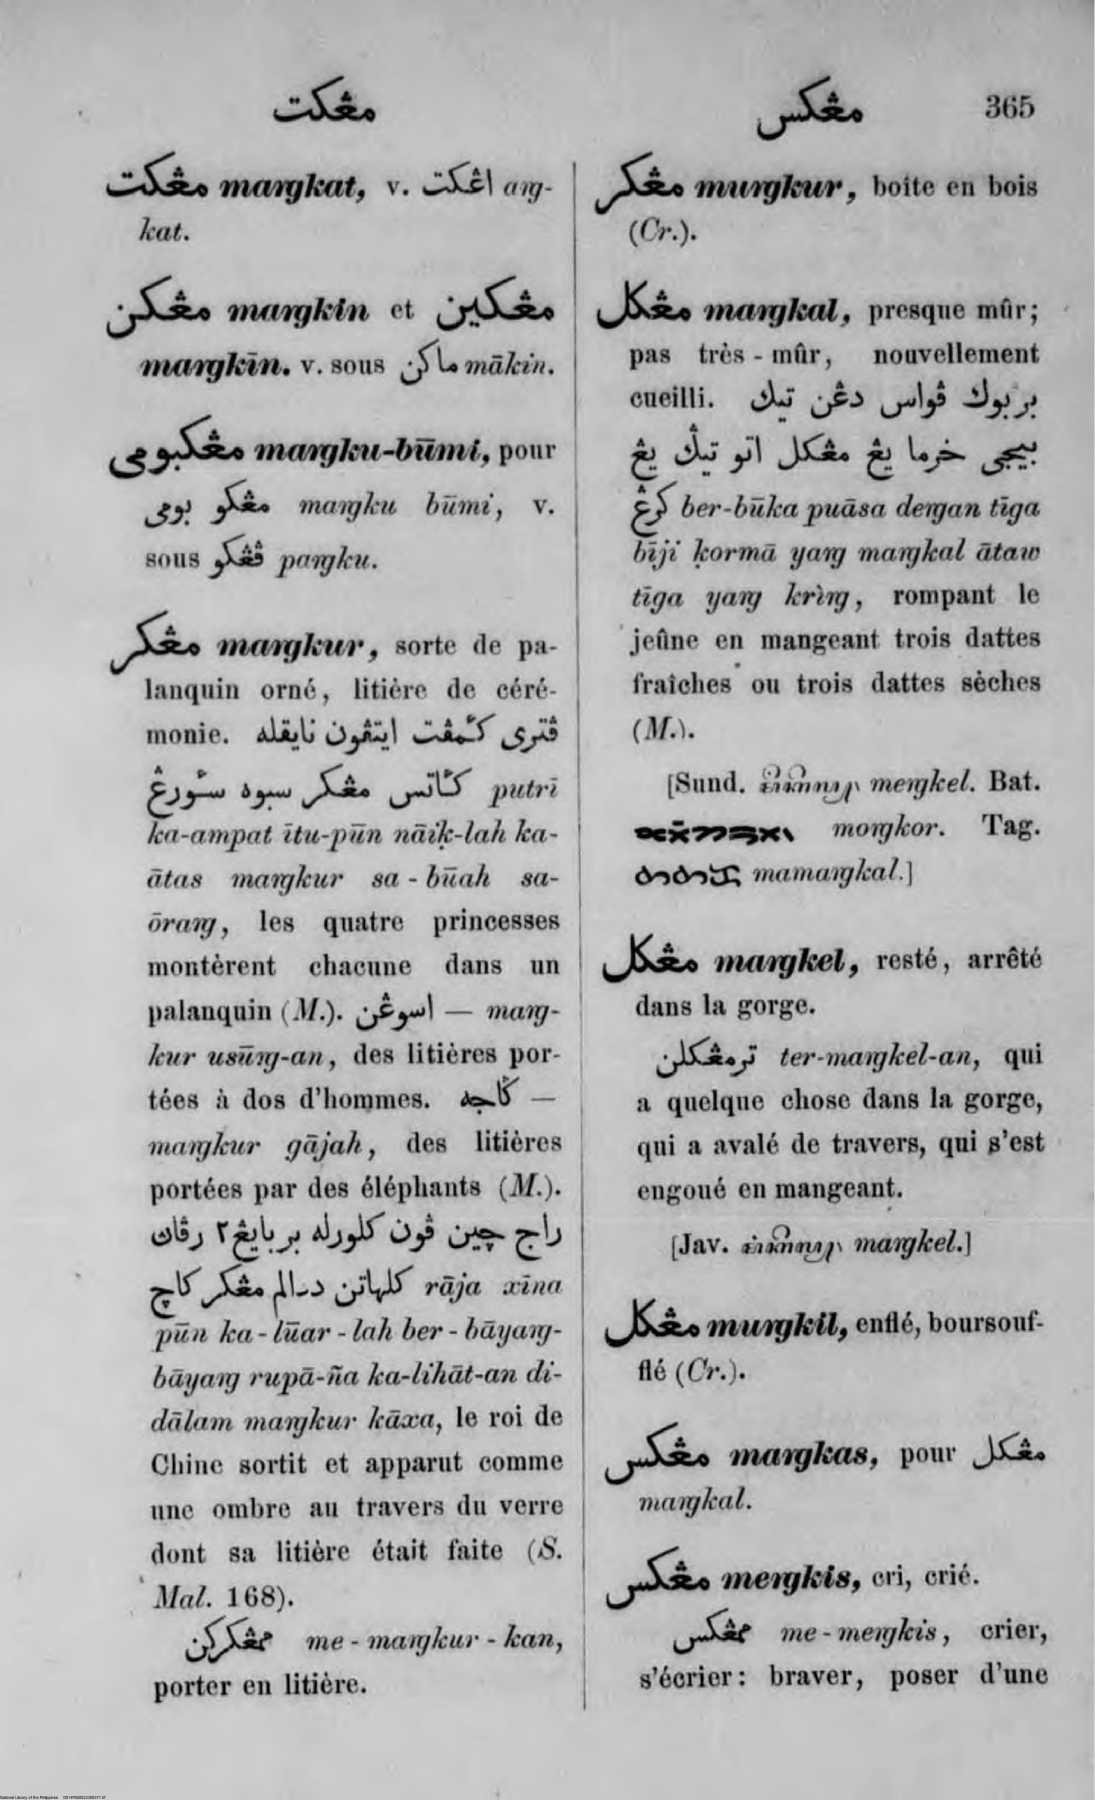 مڠكت
مڠكس 365
مڠكت maŋkat, v. اڠكت aŋ-
kat.
مڠكن maŋkin et مڠكين
maŋkīn. v. sous ماكن mākin.
مڠكبومي maŋku-būmi, pour
مڠكو بومي maŋku būmi, v.
sous ڤڠكو paŋku.
مڠكر maŋkur, sorte de pa-
lanquin orné, litière de céré-
monie. ڤتري كأمڤت ايتڤون نايقله
كأاتس مڠكر سبوه سأورڠ putrī
ka-ampat ītu-pūn nāiḳ-lah ka-
ātas maŋkur sa-būah sa-
ōraŋ, les quatre princesses
montèrent chacune dans un
palanquin (M.). اسوڠن — maŋ-
kur usūŋ-an, des litières por-
tées à dos d'hommes. ݢاجه —
maŋkur gājah, des litières
portées par des éléphants (M.).
راج چين ڤون كلورله بربايڠ٢ رڤاڽ
كلهاتن ددالم مڠكر كاچ rāja xīna
pūn ka-lūar-lah ber-bāyaŋ-
bāyaŋ rupā-ña ka-lihāt-an di-
dālam maŋkur kāxa, le roi de
Chine sortit et apparut comme
une ombre au travers du verre
dont sa litière était faite (S.
Mal. 168).
ممڠكركن me-maŋkur-kan,
porter en litière.
مڠكر muŋkur, boîte en bois
(Cr.).
مڠكل maŋkal, presque mûr;
pas très-mûr, nouvellement
cueilli. بربوك ڤواس دڠن تيݢ
بيجي خرما يڠ مڠكل اتو تيݢ يڠ
كرڠ ber-būka puāsa deŋan tīga
bīji ḳormā yaŋ maŋkal ātaw
tīga yaŋ krìŋ, rompant le
jeûne en mangeant trois dattes
fraîches ou trois dattes sèches
(M.).
[Sund. meŋkel. Bat.
moŋkor. Tag.
mamaŋkal.]
مڠكل maŋkel, resté, arrêté
dans la gorge.
ترمڠكلن ter-maŋkel-an, qui
a quelque chose dans la gorge,
qui a avalé de travers, qui s'est
engoué en mangeant.
[Jav. maŋkel.]
مڠكل muŋkil, enflé, boursouf-
flé (Cr.).
مڠكس maŋkas, pour مڠكل
maŋkal.
مڠكس meŋkis, cri, crié.
ممڠكس me-meŋkis, crier,
s'écrier: braver, poser d'une